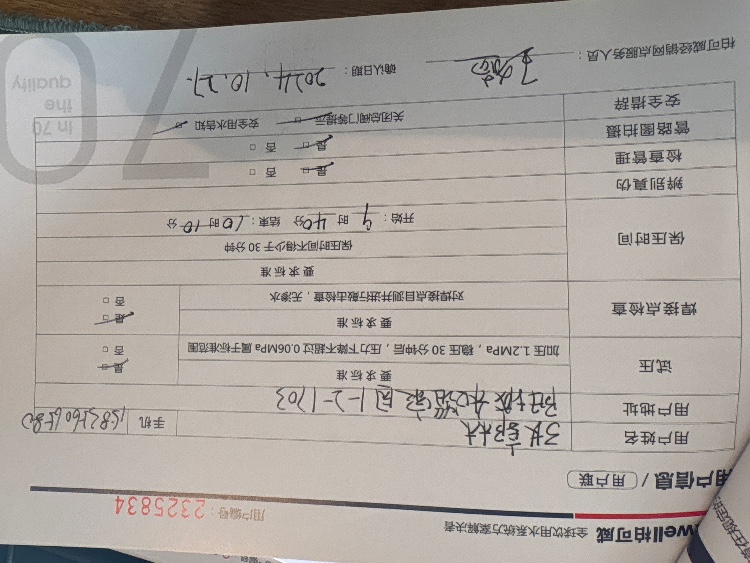 well柏可威 全球饮用水系统方案解决者
用户编号：2325834
用户信息 /（用户联）
用户姓名
手机
用户地址 1-2-1703
试压 要求标准 是
加压1.2MPa，稳压30分钟后，压力下降不超过0.06MPa属于标准范围 否
焊接点检查 要求标准 是
对焊接点目测并进行敲击检查，无渗水 否
保压时间 要求标准
保压时间不得少于30分钟
开始：9时40分 结束：10时10分
辨别真伪
检查管理 是 否
管路图拍摄 是 否
安全措辞 关闭总阀门等提示 安全用水告知
柏可威经销网点服务人员： 确认日期：2024.10.27.
In 70
the
quality
70